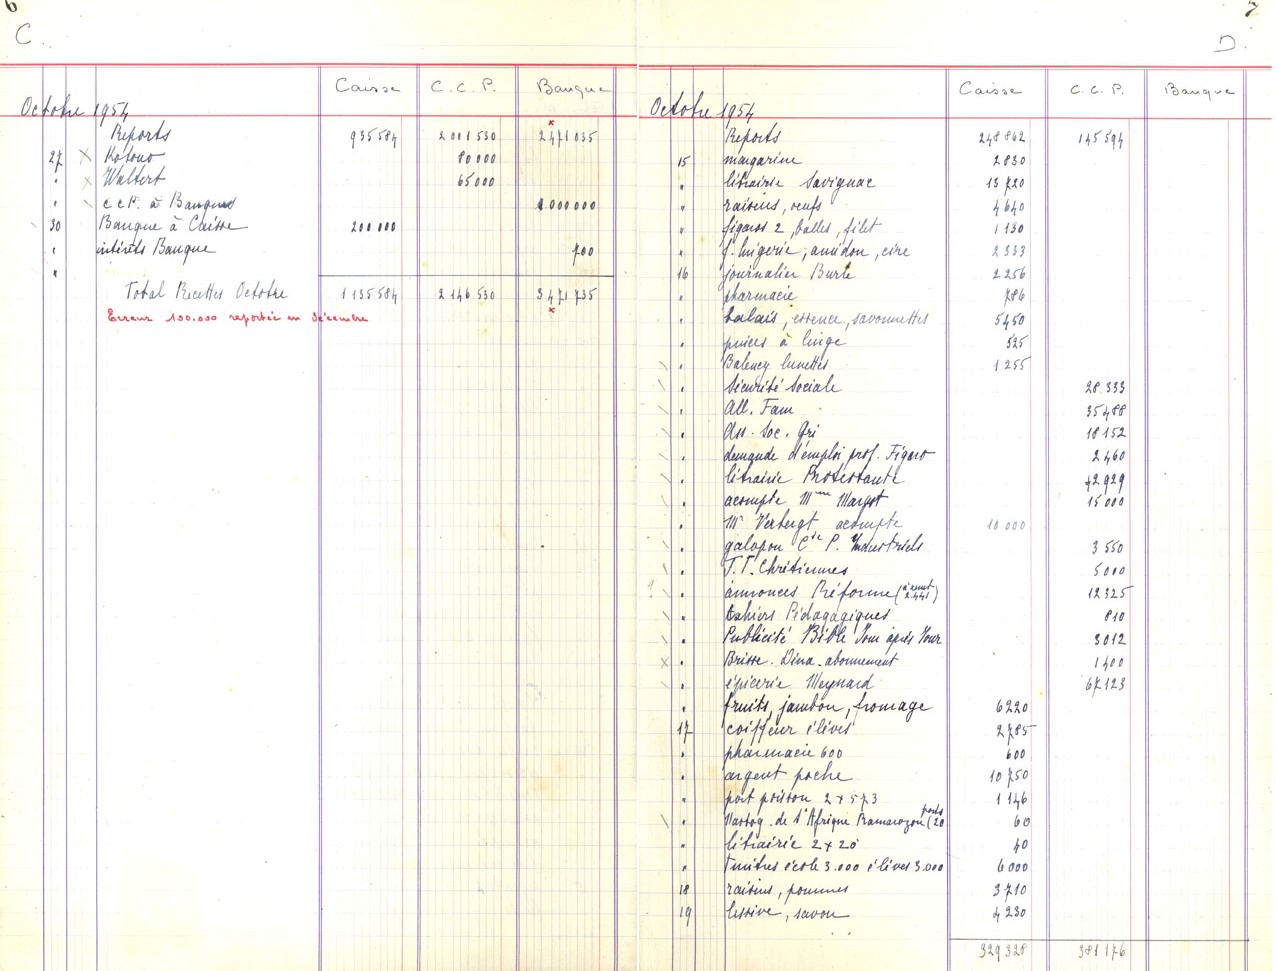 6
C.
Caisse C.C.P. Banque
Octobre 1954
Reports 935584 2001530 2471035
27 Kotouo 80000
" Waltert 65000
" C.C.P. à Banque 1000000
30 Banque à Caisse 200000
" intérêts Banque 700
"
Total Recettes Octobre 1135584 2146530 3471735
Erreur 100.000 reportée en Décembre
7
D.
Caisse C.C.P. Banque
Octobre 1954
Reports 248862 145594
15 margarine 2830
" librairie Savignac 13720
" raisins, oeufs 4640
" figaros 2, balles, filet 1130
" f. lingerie, amidon, cire 2333
16 journalier Burle 2256
" pharmacie 786
" balais, essence, savonnettes 5450
" pinces à linge 525
" Balency lunettes 1255
" Sécurité Sociale 28.333
" All. Fam 35488
" Ass. Soc. Gri 18152
" demande d'emploi prof. Figaro 2460
" librairie Protestante 42929
" acompte Mme Margot 15000
" Mr Verbergt acompte 10000
" galopou Cie P. Industriels 3550
" T.T. Chrétiennes 5000
" annonces Réforme ( 2.441) 12325
" Cahiers Pédagogiques 810
" Publicité Bible Jour après Jour 3012
" Brisse. Dina. abonnement 1400
" épicerie Meynard 67123
" fruits, jambon, fromage 6220
17 coiffeur élèves 2785
" pharmacie 600 600
" argent poche 10750
" port poisson 2 x 573 1146
" de l'Afrique Ramarozon (ports 20 60
" librairie 2 x 20 40
" Timbres école 3.000 élèves 3.000 6000
18 raisins, pommes 3710
19 lessive, savon 4230
329328 381176